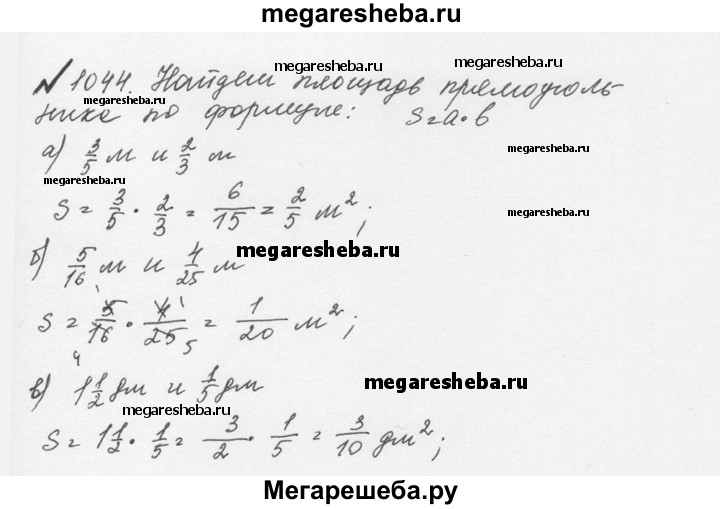 megaresheba.ru
№ 1044. Найдем площадь прямоуголь- megaresheba.ru
megaresheba.ru
ника по формуле: S = a · b
а) 3/5 м и 2/3 м megaresheba.ru
megaresheba.ru
S = 3/5 · 2/3 = 6/15 = 2/5 м²; megaresheba.ru
б) 5/16 м и 4/25 м megaresheba.ru
S = 5/16 · 4/25 = 1/20 м²;
1 1 4 5
в) 1 1/2 дм и 1/5 дм megaresheba.ru
megaresheba.ru
S = 1 1/2 · 1/5 = 3/2 · 1/5 = 3/10 дм²;
Мегарешеба.ру